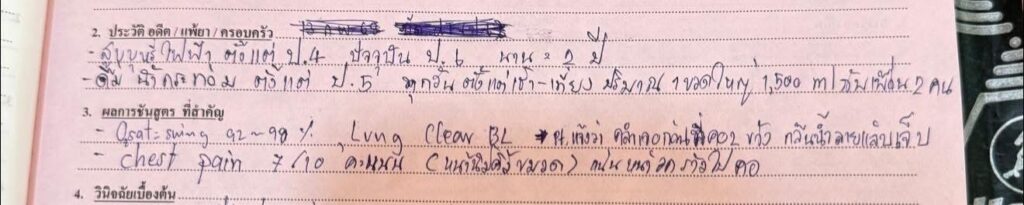 2. ประวัติ อดีต / แพ้ยา / ครอบครัว
- สูบบุหรี่ไฟฟ้า ตั้งแต่ ป.4 ปัจจุบัน ป.6 นาน = 2 ปี
- ดื่ม น้ำกระท่อม ตั้งแต่ ป.5 ทุกวัน ตั้งแต่เช้า-เที่ยง ปริมาณ 1 ขวดใหญ่ 1,500 ml กับเพื่อน 2 คน
3. ผลการชันสูตร ที่สำคัญ
- O2sat = swing 92-98 % , Lung Clear BL น. แจ้งว่า คลำคอก่อน ข้าง กลืนน้ำลายแล้วเจ็บ
- chest pain 7/10 คะแนน ( ) แน่นหน้าอก ร้าวไปคอ
4. วินิจฉัยเบื้องต้น